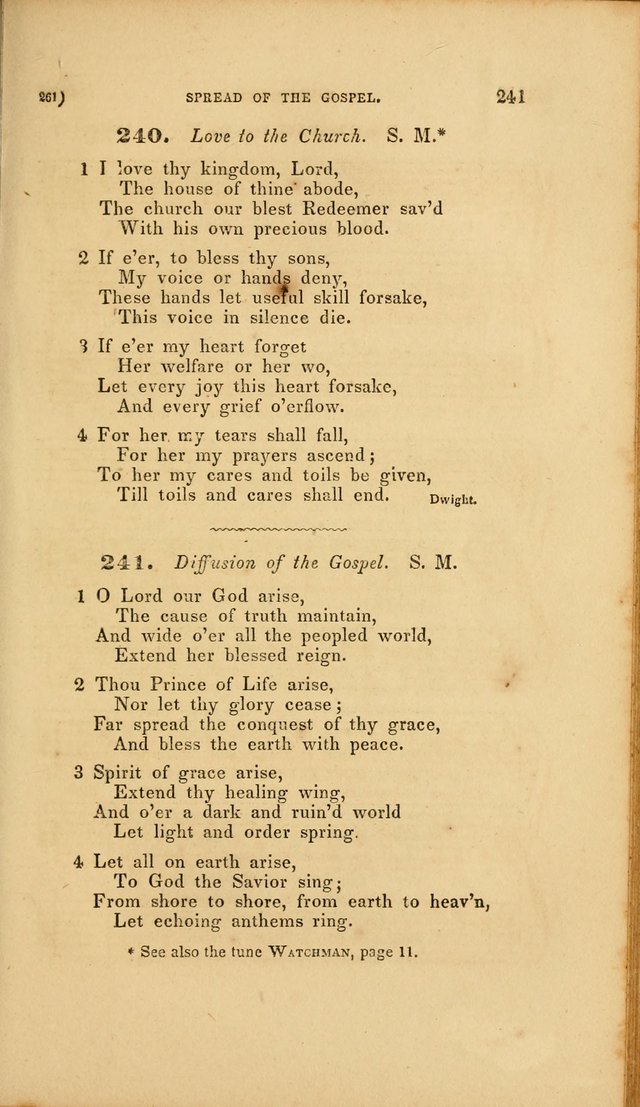 261)   SPREAD OF THE GOSPEL.   241
240. Love to the Church. S. M.*
1 I love thy kingdom, Lord,
The house of thine abode,
The church our blest Redeemer sav'd
With his own precious blood.
2 If e'er, to bless thy sons,
My voice or hands deny,
These hands let useful skill forsake,
This voice in silence die.
3 If e'er my heart forget
Her welfare or her wo,
Let every joy this heart forsake,
And every grief o'erflow.
4 For her my tears shall fall,
For her my prayers ascend;
To her my cares and toils be given,
Till toils and cares shall end.   Dwight.
241. Diffusion of the Gospel. S. M.
1 O Lord our God arise,
The cause of truth maintain,
And wide o'er all the peopled world,
Extend her blessed reign.
2 Thou Prince of Life arise,
Nor let thy glory cease;
Far spread the conquest of thy grace,
And bless the earth with peace.
3 Spirit of grace arise,
Extend thy healing wing,
And o'er a dark and ruin'd world
Let light and order spring.
4 Let all on earth arise,
To God the Savior sing;
From shore to shore, from earth to heav'n,
Let echoing anthems ring.
* See also the tune WATCHMAN, page 11.